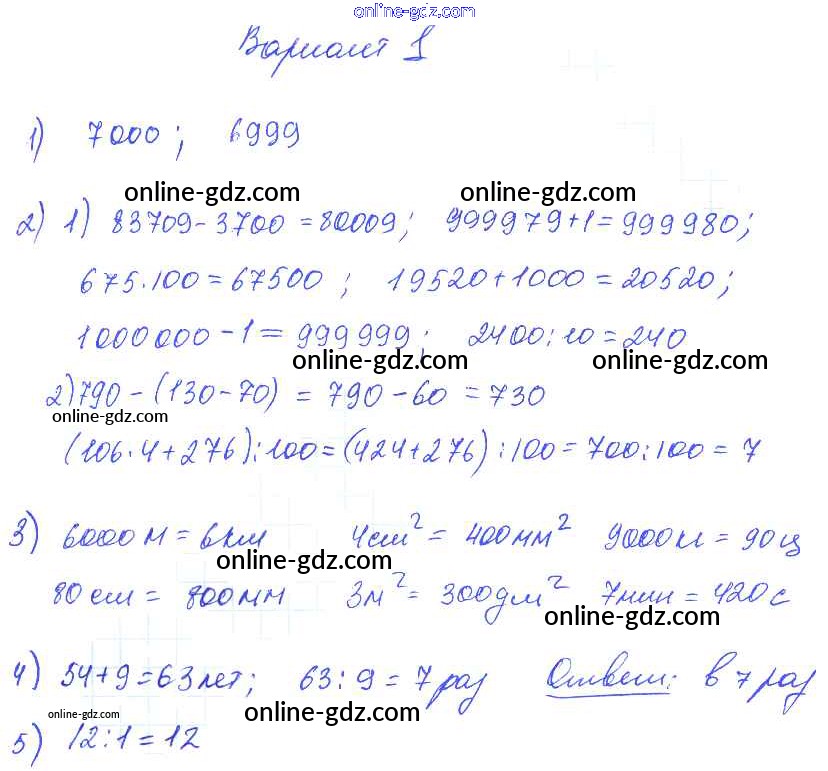 online-gdz.com
Вариант 1
1) 7000; 6999
online-gdz.com online-gdz.com
2) 1) 83709-3700=80009; 999979+1=999980;
675·100=67500; 19520+1000=20520;
1000000-1=999999; 2400:10=240
online-gdz.com online-gdz.com
2) 790-(130-70)=790-60=730
online-gdz.com
(106·4+276):100=(424+276):100=700:100=7
3) 6000м=6км 4см²=400мм² 9000кг=90ц
online-gdz.com
80см=800мм 3м²=300дм² 7мин=420с
online-gdz.com
4) 54+9=63лет; 63:9=7раз Ответ: в 7 раз
online-gdz.com online-gdz.com
5) 12:1=12